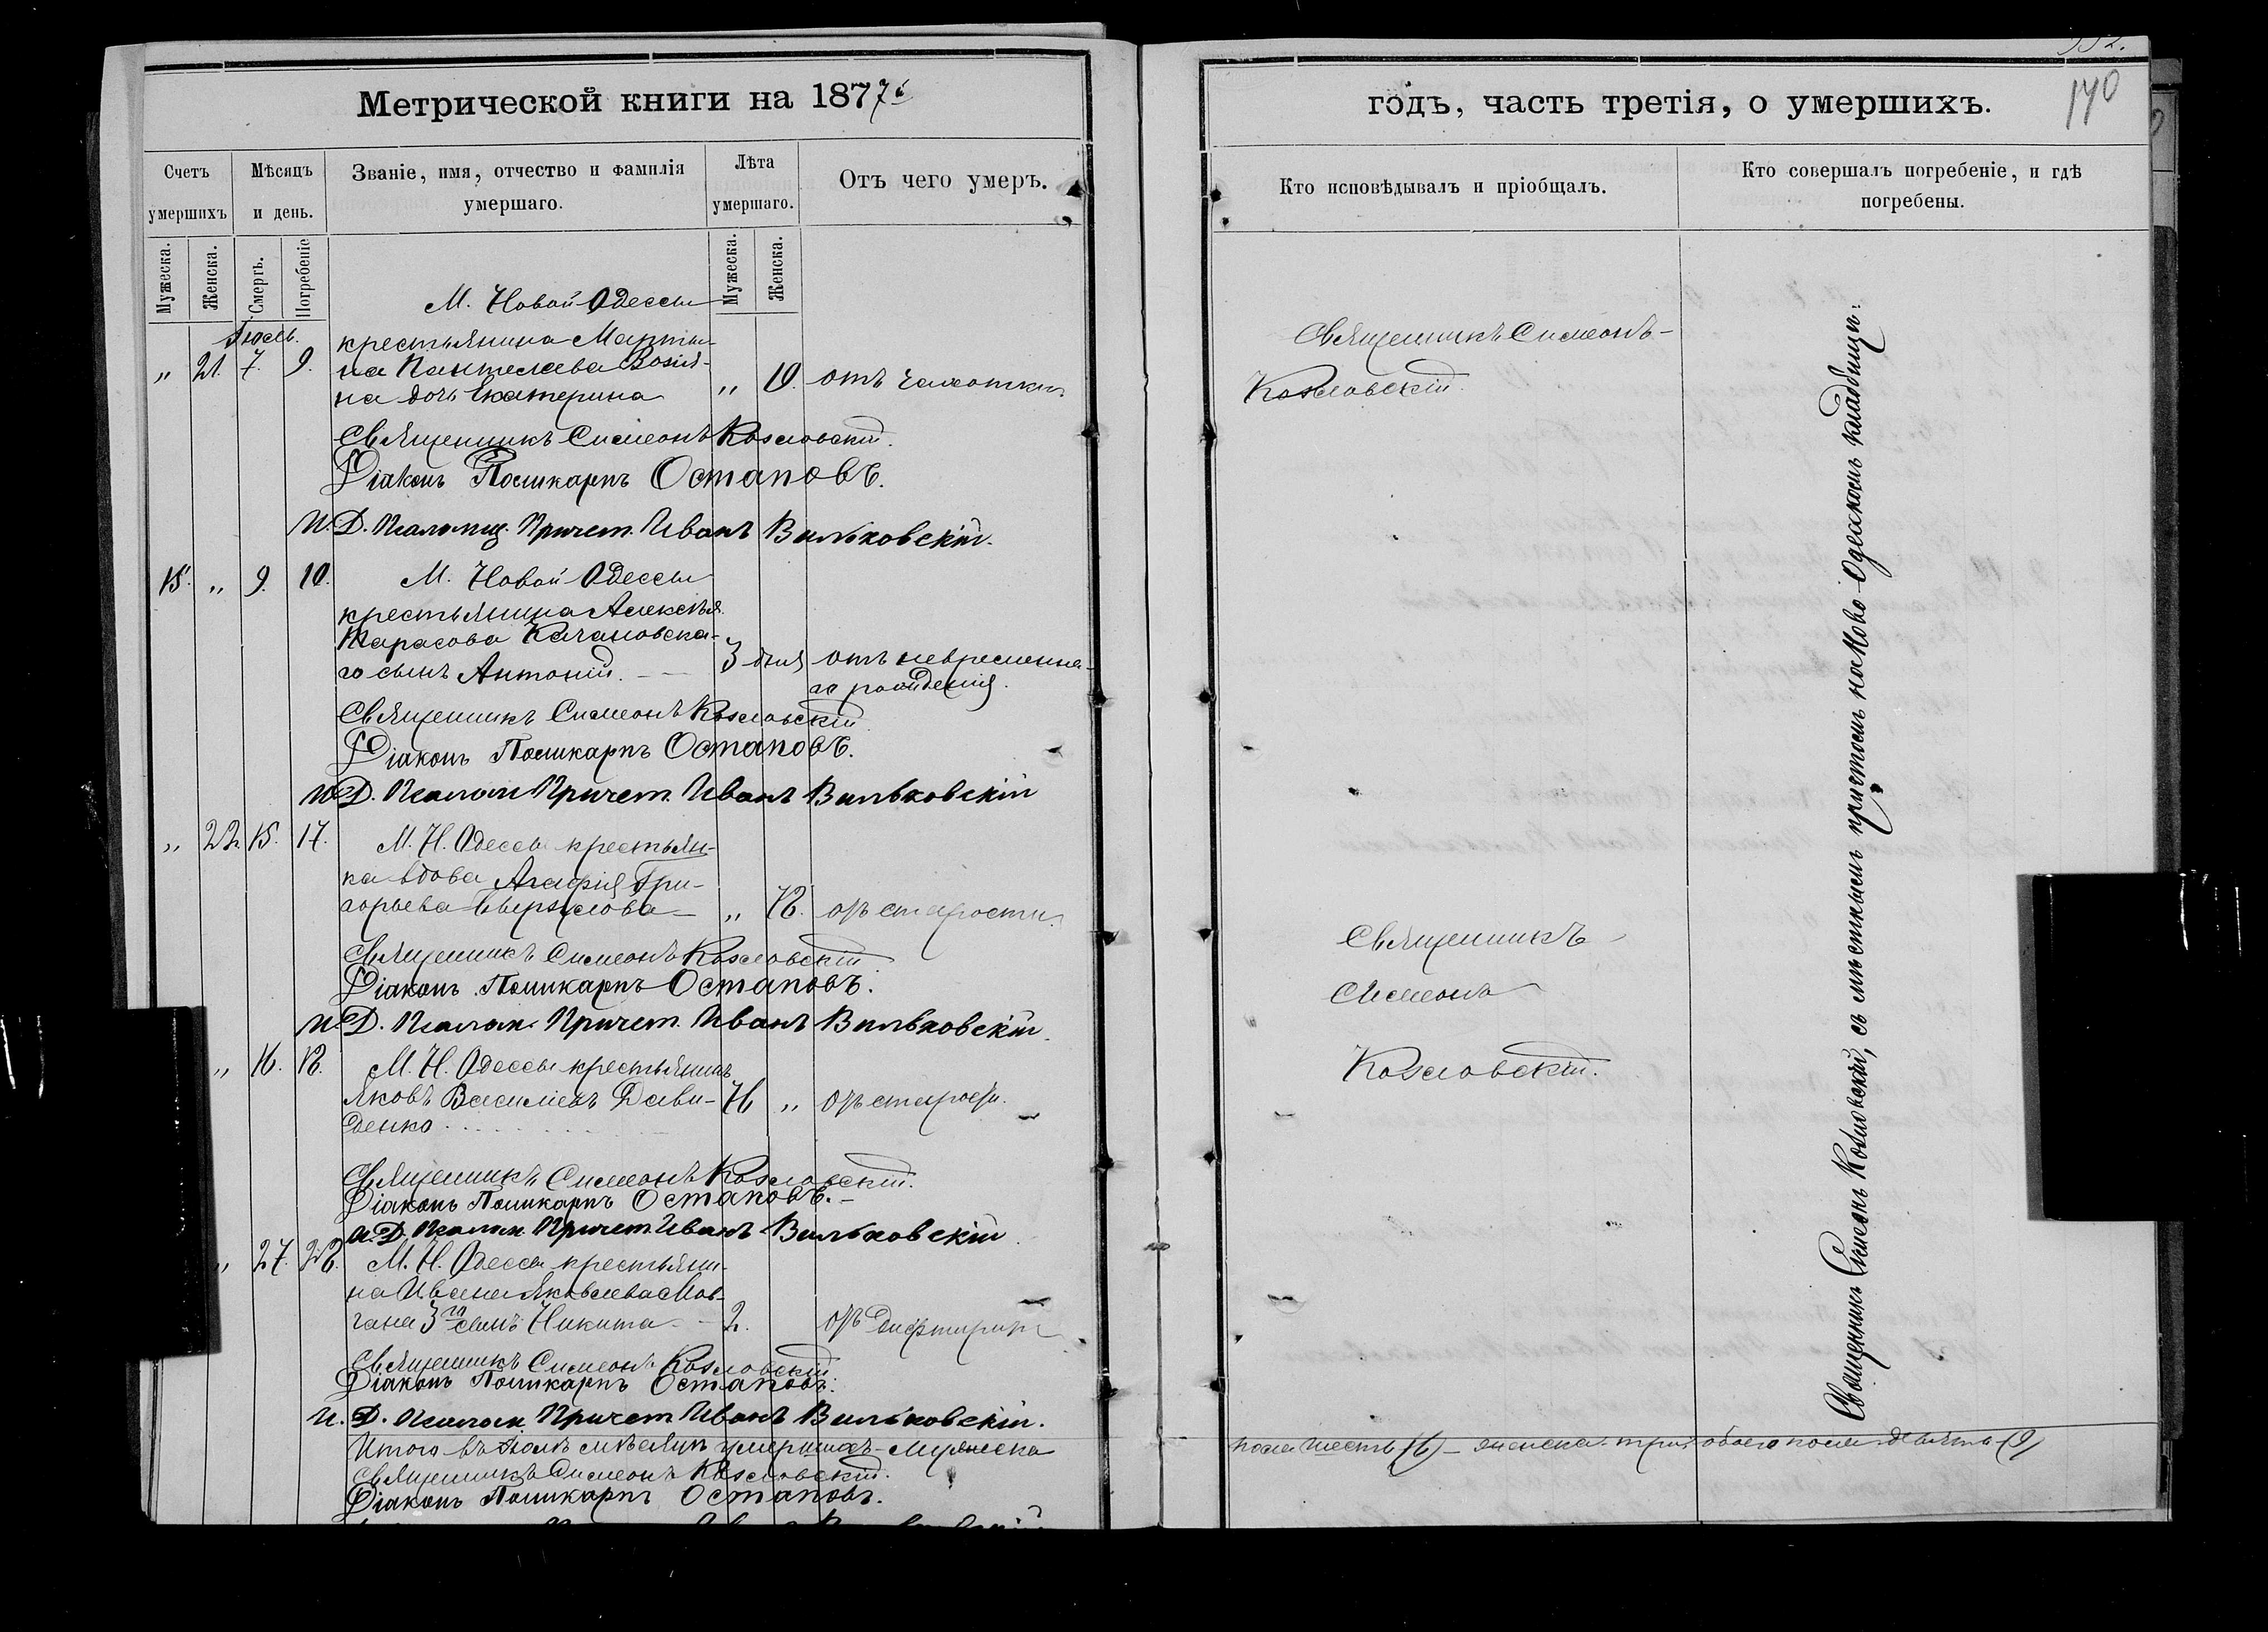 Метрической книги на 1877й
Счетъ умершихъ
Мѣсяцъ и день.
Званіе, имя, отчество и фамилія умершаго.
Лѣта умершаго.
Отъ чего умеръ.
Мужеска.
Женска.
Смерть.
Погребеніе
Мужеска.
Женска.
М. Новой Одессы
Іюль.
крестьянина Марты-
" 21. 7. 9. на Пантелеева
на дочь Екатерина " 10. отъ чахотки
Священникъ Симеонъ Козловскій.
Діаконъ Поликарпъ Остаповъ.
И. Д. Псаломщ. Причет. Иванъ Вильковскій.
15. " 9. 10. М. Новой Одессы
крестьянина Алексѣя
Тарасова Качановска-
го сынъ Антоній. 3 дня отъ невременна-
го рожденія.
Священникъ Симеонъ Козловскій
Діаконъ Поликарпъ Остаповъ.
И. Д. Псалом Причет. Иванъ Вильковскій
" 22. 15. 17. М. Н. Одессы крестьян-
ка вдова Агафія Гри-
горьева " 78. отъ старости.
Священникъ Симеонъ Козловскій
Діаконъ Поликарпъ Остаповъ.
И. Д. Псалом. Причет. Иванъ Вильковскій.
" 16. 18. М. Н. Одессы крестьянинъ
Яковъ Василіевъ Дави- 76 " отъ старости.
денко
Священникъ Симеонъ Козловскій.
Діаконъ Поликарпъ Остаповъ.
И. Д. Псалом. Причет. Иванъ Вильковскій.
" 27. 28. М. Н. Одессы крестьяни-
на Ивана Яковлева Мов-
чана 3го сынъ Никита 2. отъ дифтирита
Священникъ Симеонъ Козловскій
Діаконъ Поликарпъ Остаповъ.
И. Д. Псалом. Причет Иванъ Вильковскій.
Итого въ Іюлѣ мѣсяцѣ умершихъ мужеска
Священникъ Симеонъ Козловскій.
Діаконъ Поликарпъ Остаповъ.
годъ, часть третія, о умершихъ.
170
Кто исповѣдывалъ и пріобщалъ.
Кто совершалъ погребеніе, и гдѣ погребены.
Священникъ Симеонъ
Козловскій.
Священникъ
Симеонъ
Козловскій.
Священникъ Симеонъ Козловскій, съ мѣстнымъ причтомъ на Ново-Одесскомъ кладбищѣ.
пола шесть (6) – женска три, обоего пола девять (9)